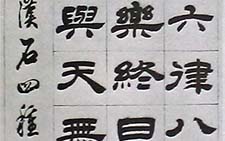 六律八
樂終目
與天無
漢石四種